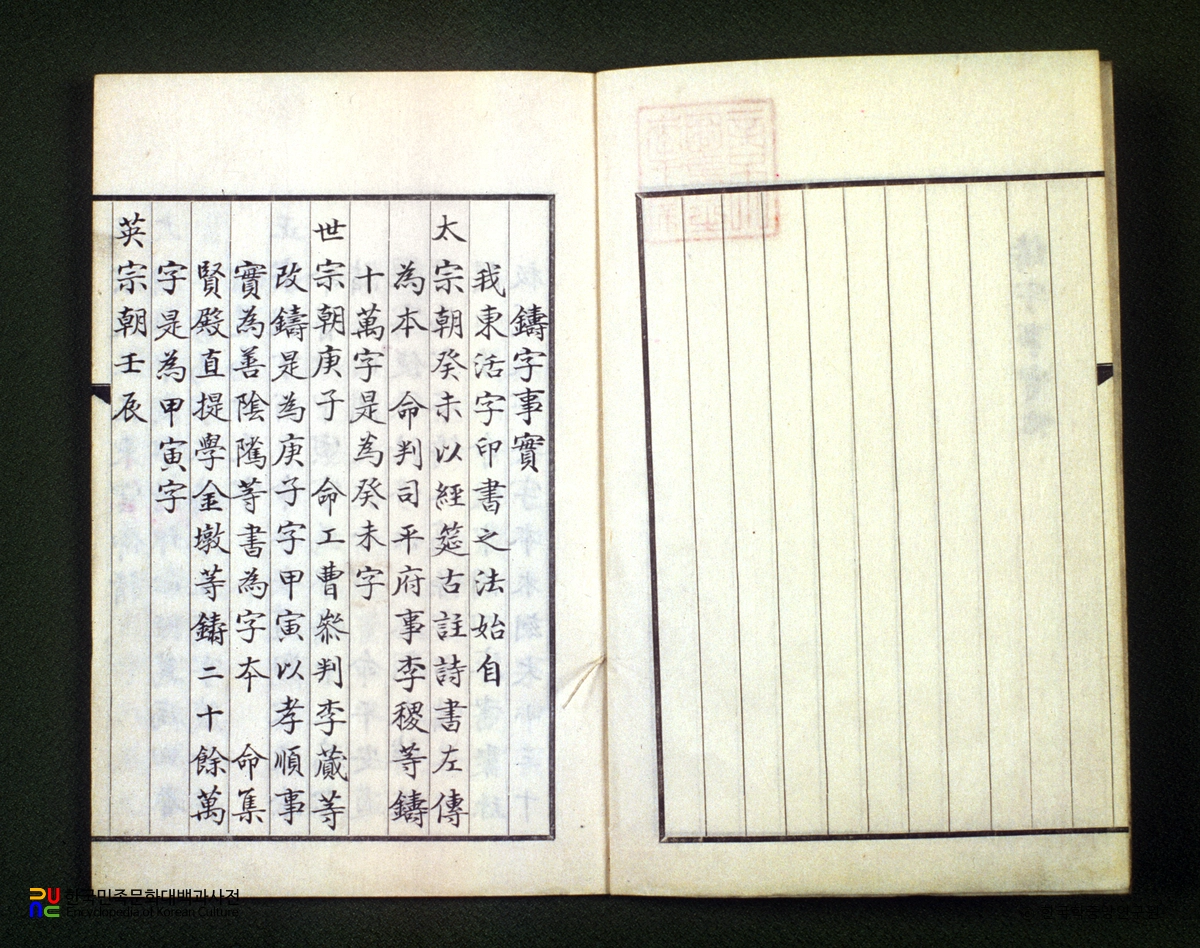 鑄字事實
我東活字印書之法始自
太宗朝癸未以經筵古註詩書左傳
為本 命判司平府事李稷等鑄
十萬字是為癸未字
世宗朝庚子 命工曹叅判李蕆等
改鑄是為庚子字甲寅以孝順事
實為善陰隲等書為字本 命集
賢殿直提學金墩等鑄二十餘萬
字是為甲寅字
英宗朝壬辰
한국민족문화대백과사전
Encyclopedia of Korean Culture